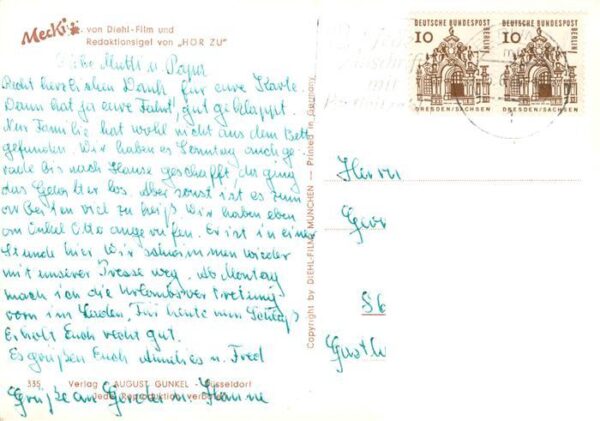 Mecki
von Diehl-Film und
Redaktionsigel von „HÖR ZU"
Liebe Mutti u. Papa
Recht herzlichen Dank für eure Karte.
Dann hat ja eure Fahrt gut geklappt.
Nur Familie hat wohl nicht aus dem Bett
gefunden. Wir haben es Sonntag auch ge-
rade bis nach Hause geschafft, da ging
das Gewitter los. Aber sonst ist es zum
arbeiten viel zu heiß. Wir haben eben
am Onkel Otto angerufen. Er ist in einer
Stunde hier. Wir schwimmen wieder
mit unserer Presse weg. Ab Montag
mach ich die Urlaubsvertretung
vorn im Laden. Für heute nun Schluß
Erholt Euch recht gut.
Es grüßen Euch Annelies u. Fred
Grüße an Gerda u. Hanne
335 Verlag AUGUST GUNKEL - Düsseldorf
Jede Reproduktion verboten
Copyright by DIEHL-FILM MÜNCHEN — Printed in Germany
DEUTSCHE BUNDESPOST
BERLIN
10
DRESDEN/SACHSEN
DEUTSCHE BUNDESPOST
BERLIN
10
DRESDEN/SACHSEN
mit
Herrn
Geor